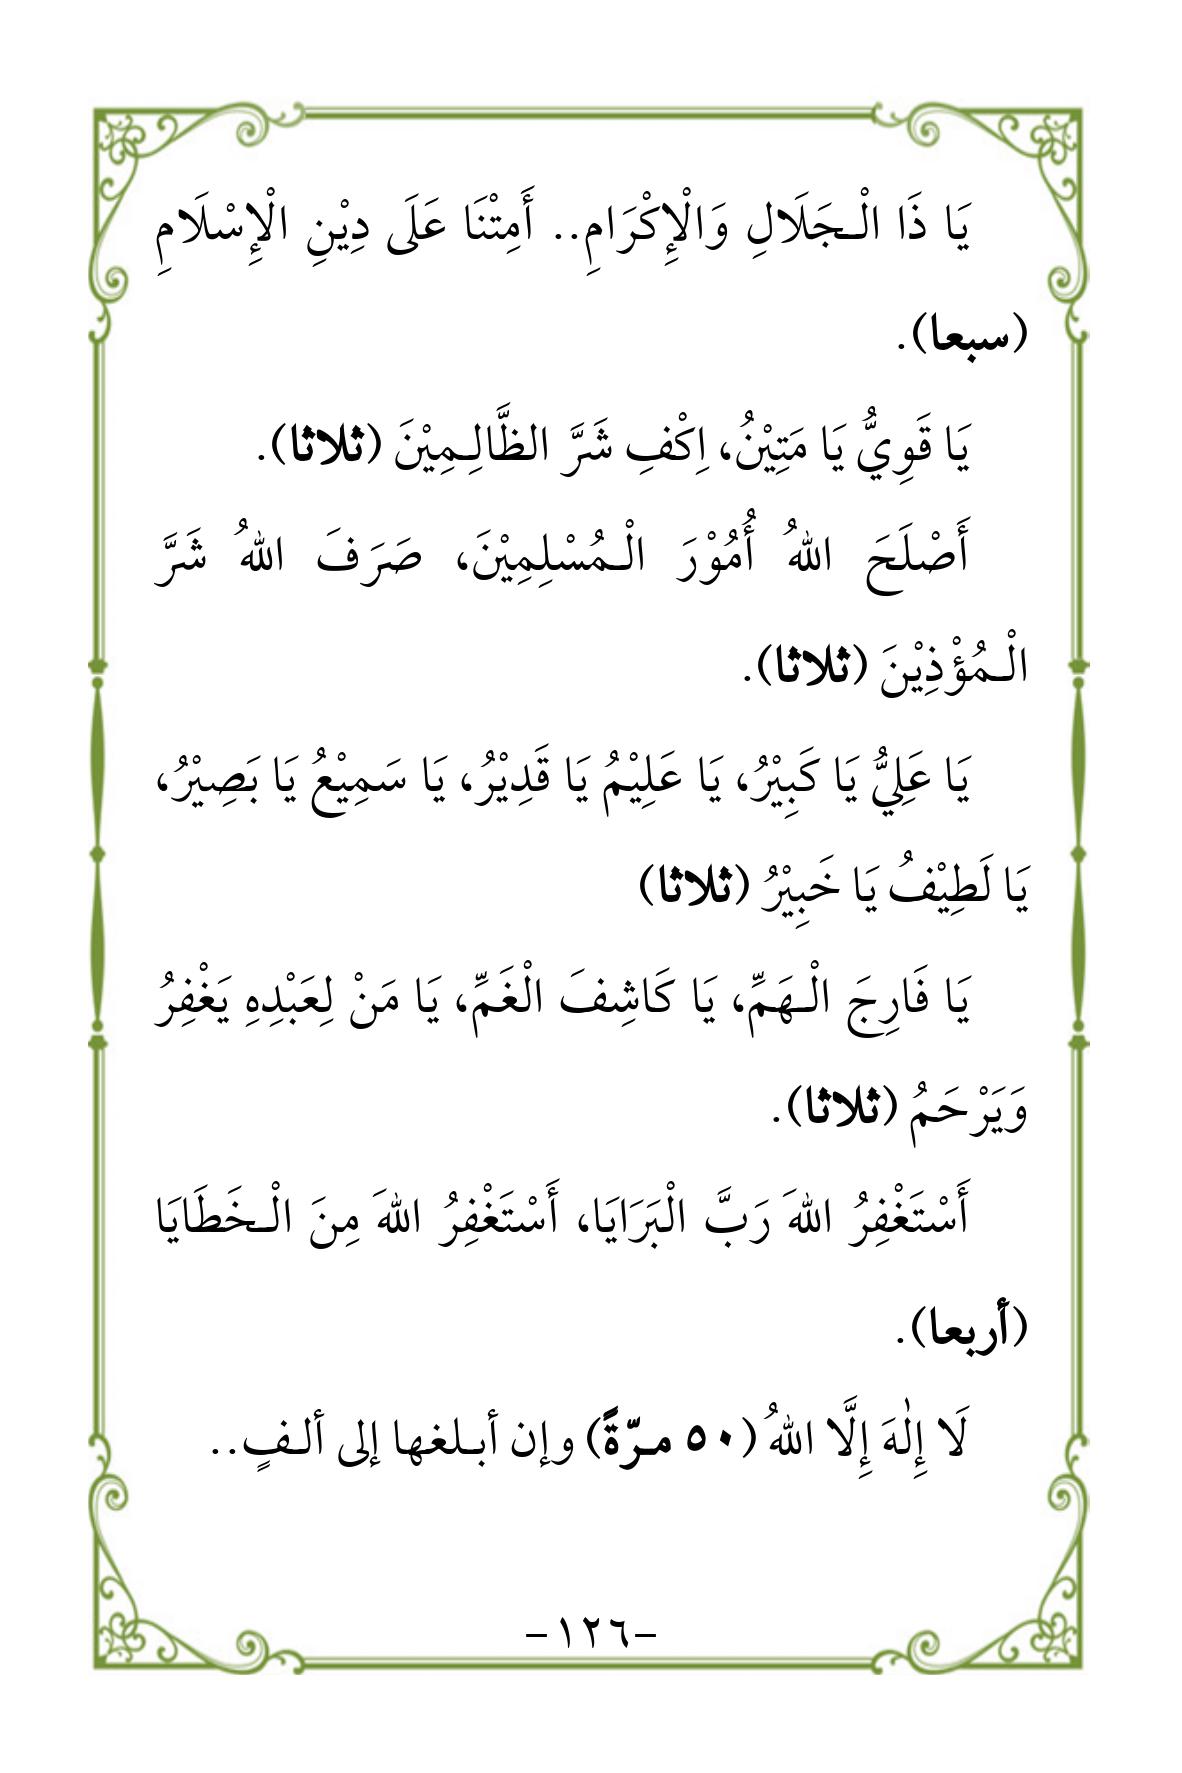 يَا ذَا الْـجَلَالِ وَالْإِكْرَامِ.. أَمِتْنَا عَلَى دِيْنِ الْإِسْلَامِ
(سبعا).
يَا قَوِيُّ يَا مَتِيْنُ، اِكْفِ شَرَّ الظَّالِـمِيْنَ (ثلاثا).
أَصْلَحَ اللهُ أُمُوْرَ الْـمُسْلِمِيْنَ، صَرَفَ اللهُ شَرَّ
الْـمُؤْذِيْنَ (ثلاثا).
يَا عَلِيُّ يَا كَبِيْرُ، يَا عَلِيْمُ يَا قَدِيْرُ، يَا سَمِيْعُ يَا بَصِيْرُ،
يَا لَطِيْفُ يَا خَبِيْرُ (ثلاثا)
يَا فَارِجَ الْـهَمِّ، يَا كَاشِفَ الْغَمِّ، يَا مَنْ لِعَبْدِهِ يَغْفِرُ
وَيَرْحَمُ (ثلاثا).
أَسْتَغْفِرُ اللهَ رَبَّ الْبَرَايَا، أَسْتَغْفِرُ اللهَ مِنَ الْـخَطَايَا
(أربعا).
لَا إِلٰهَ إِلَّا اللهُ (٥٠ مـرّةً) وإن أبـلغها إلى ألـفٍ..
-١٢٦-